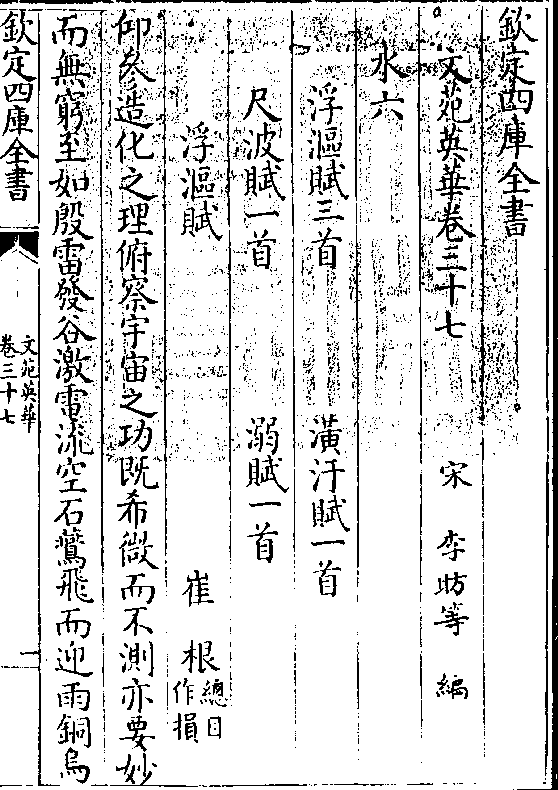 欽定四庫全書
文苑英華卷三十七
宋 李昉等 編
水六
浮漚賦三首 潢汙賦一首
尺波賦一首 溺賦一首
浮漚賦 崔根 總目作損
仰叅造化之理俯察宇宙之功既希微而不測亦要妙
而無窮至如殷雷發谷激電流空石鷰飛而迎雨銅烏
欽定四庫全書
文苑英華
卷三十七
一